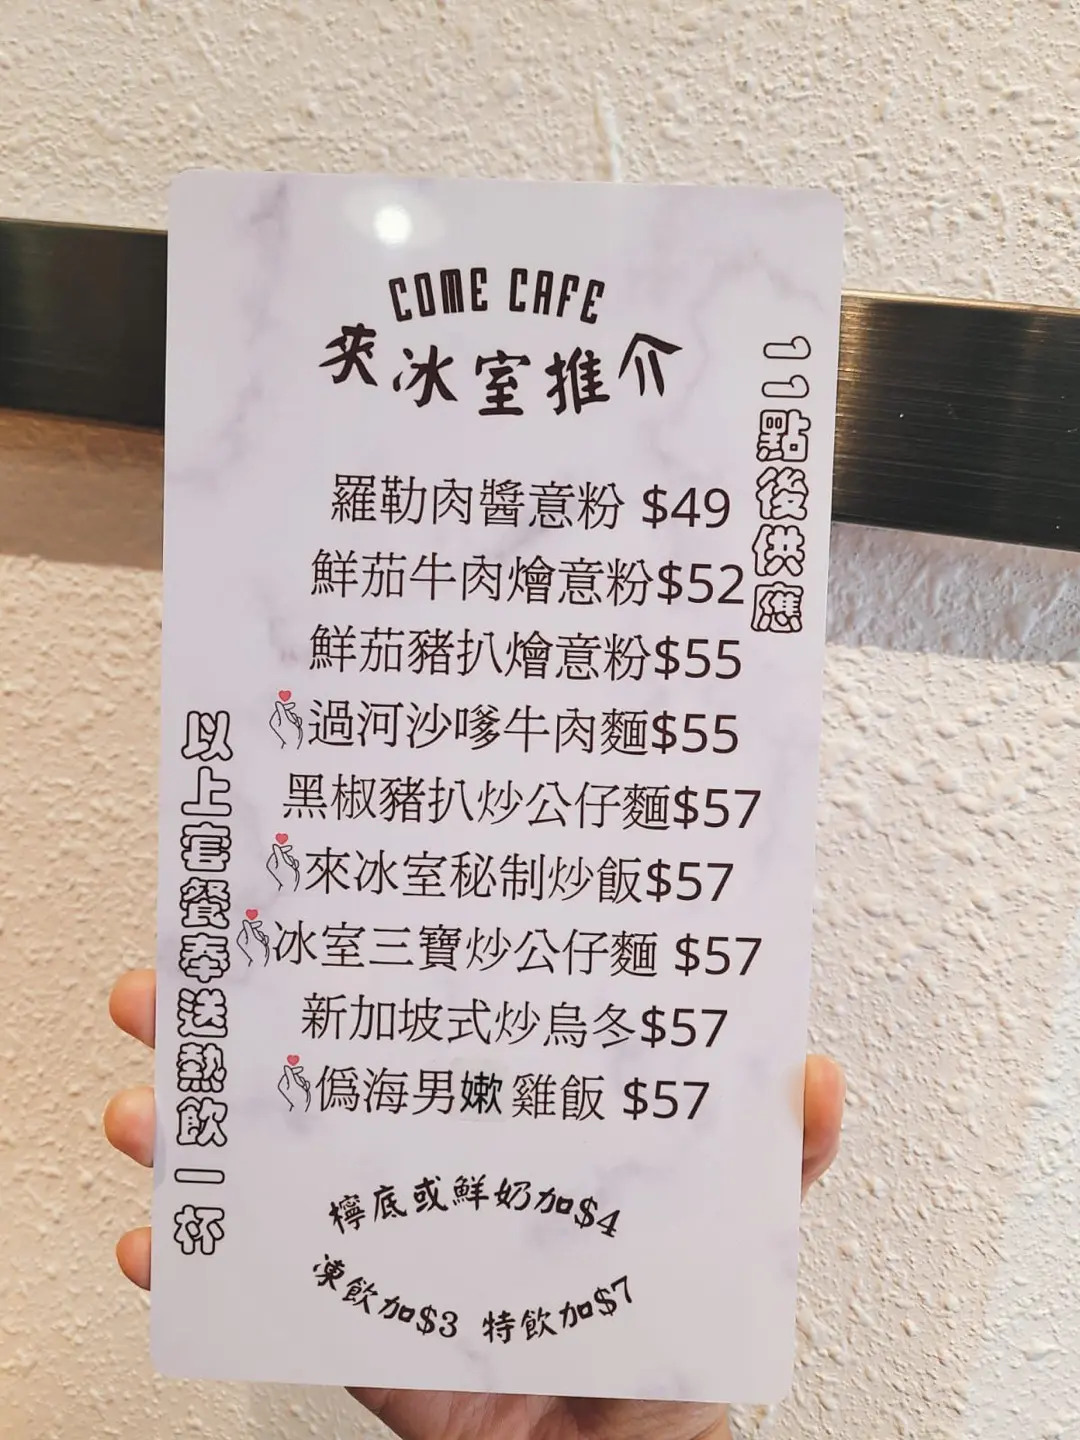 COME CAFE
來冰室推介
一一點後供應
羅勒肉醬意粉 $49
鮮茄牛肉燴意粉$52
鮮茄豬扒燴意粉$55
過河沙嗲牛肉麵$55
黑椒豬扒炒公仔麵$57
來冰室秘制炒飯$57
冰室三寶炒公仔麵 $57
新加坡式炒烏冬$57
僞海男嫰雞飯 $57
以上套餐奉送熱飲一杯
檸底或鮮奶加$4
凍飲加$3 特飲加$7